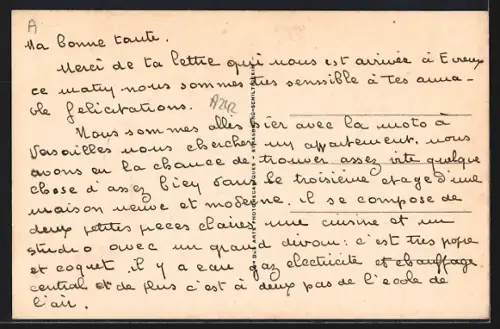 A
Ma bonne tante.
Merci de ta lettre qui nous est arrivée à Evreux
ce matin nous sommes tres senssible à tes aima-
ble felicitations.
A242
Nous sommes allés hier avec la moto à
Versailles nous chercher un appartement. nous
avons eu la chance de trouver assez vite quelque
chose d'assez bien dans le troisième etage d'une
maison neuve et moderne. il se compose de
deux petites pieces claires une cuisine et un
studio avec un grand divan: c'est tres propre
et coquet. il y a eau gaz electricite et chauffage
central et de plus c'est à deux pas de l'ecole de
l'air.